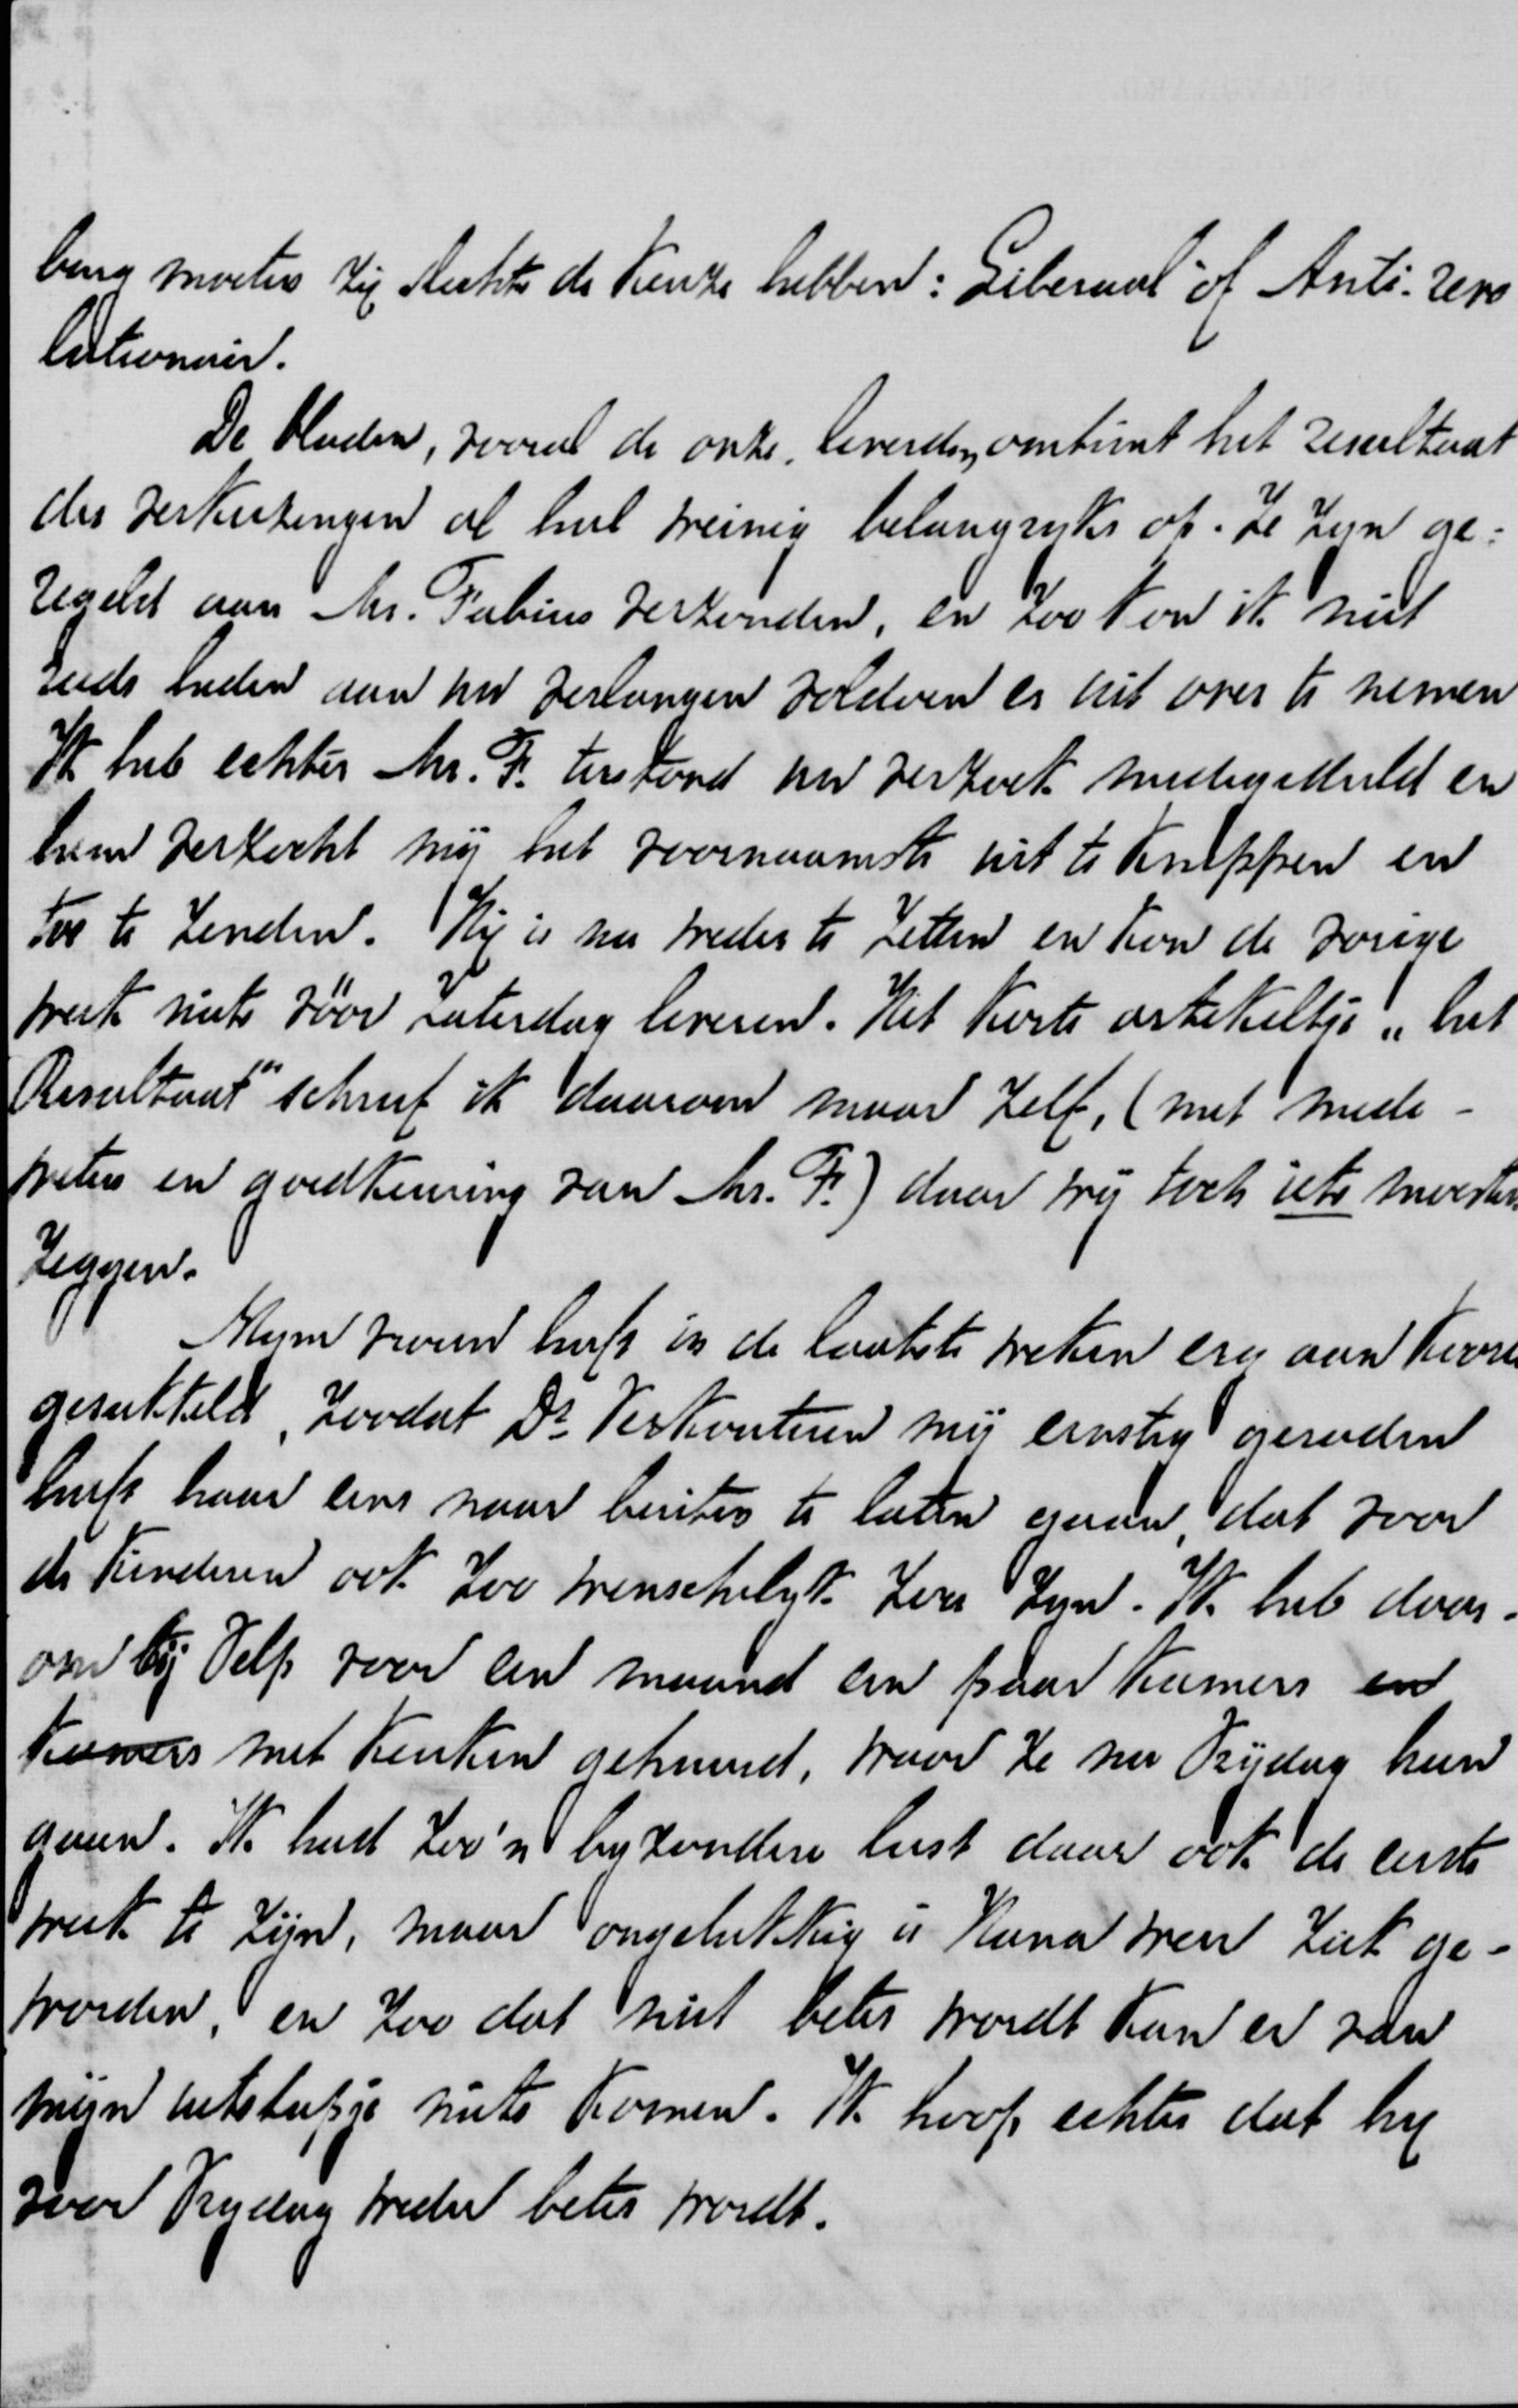 burg moeten zij slechts de keuze hebben: Liberaal of Anti-revo
lutionair.
De bladen, vooral de onze, leverden omtrent het resultaat
der verkiezingen al heel weinig belangryks op. Ze zyn ge-
regeld aan Mr. Fabius verzonden, en zoo kon ik niet
reeds heden aan uw verlangen voldoen er uit over te nemen
Ik heb echter Mr. F. terstond uw verzoek medegedeeld en
hem verzocht mij het voornaamste uit te knippen en
toe te zenden. Hij is nu weder te Zetten en kon de vorige
week niets vóór Zaterdag leveren. Het korte artikeltje „het
Resultaat" schreef ik daarom maar zelf, (met mede-
weten en goedkeuring van Mr. F.) daar wij toch iets moesten
zeggen.
Myn vrouw heeft in de laatste weken erg aan koorts
gesukkeld, zoodat Dr Verkouteren mij ernstig geraden
heeft haar eens naar buiten te laten gaan, dat voor
de kinderen ook zoo wenschelyk zou zyn. Ik heb daar-
om bij Velp voor een maand een paar kamers en
kamers met keuken gehuurd, waar ze nu Vrijdag heen
gaan. Ik had zoo'n byzondere lust daar ook de eerste
week te zijn, maar ongelukkig is Kana weer ziek ge-
worden, en zoo dat niet beter wordt kan er van
mijn uitstapje niets komen. Ik hoop echter dat hy
voor Vrydag weder beter wordt.